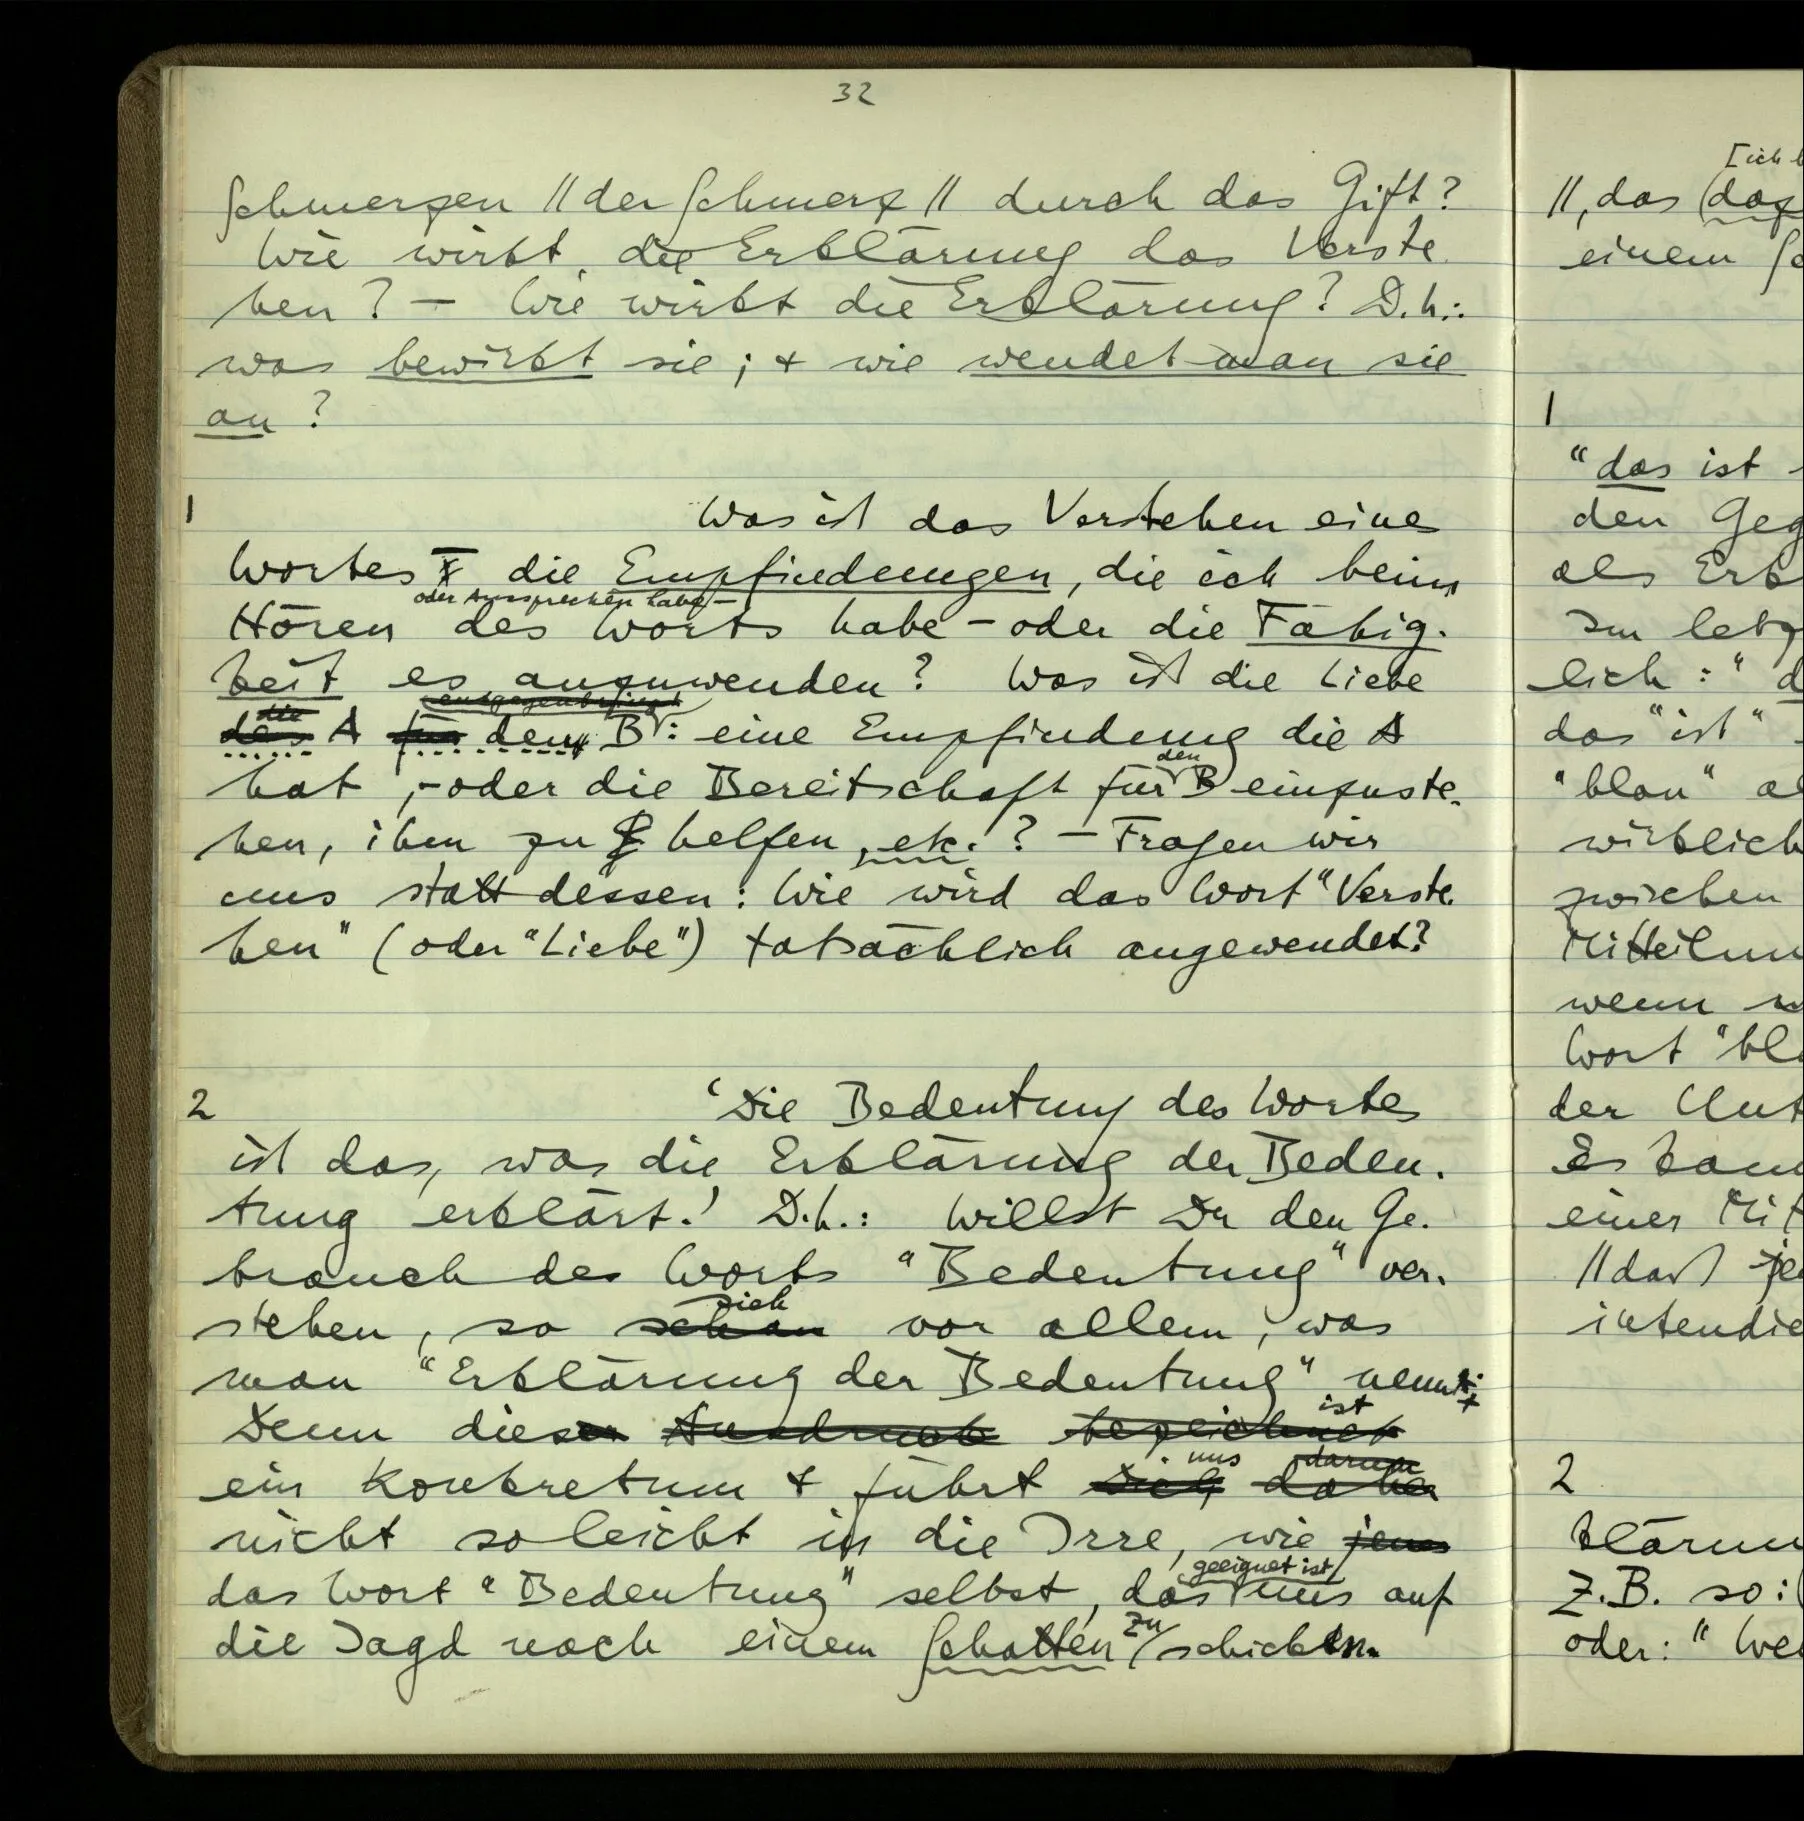 32
Schmerzen || der Schmerz || durch das Gift?
Wie wirkt die Erklärung das Verste-
hen? – Wie wirkt die Erklärung? D.h.:
was bewirkt sie; + wie wendet man sie
an?
1
Was ist das Verstehen eines
Wortes die Empfindungen, die ich beim
oder Aussprechen habe –
Hören des Worts habe – oder die Fähig-
keit es anzuwenden? Was ist die Liebe
die entgegenbringt
des A für den B: eine Empfindung die A
den
hat, – oder die Bereitschaft für B einzuste-
hen, ihm zu helfen, etc.? – Fragen wir
uns statt dessen: Wie wird das Wort "Verste-
hen" (oder "Liebe") tatsächlich angewendet?
2
'Die Bedeutung des Wortes
ist das, was die Erklärung der Bedeu-
tung erklärt.' D.h.: Willst Du den Ge-
brauch des Worts "Bedeutung" ver-
sieh
stehen, so schau vor allem, was
man "Erklärung der Bedeutung" nennt.
ist
Denn dieser Ausdruck bezeichnet
uns darum
ein Konkretum + führt Dich daher
nicht so leicht in die Irre, wie jenes
geeignet ist
das Wort "Bedeutung" selbst, das uns auf
zu
die Jagd nach einem Schatten schicken.
[ich
||, das (das
einem
1
"das ist
den
als
Im
lich: "
das "ist"
"blau"
wirklich
zwischen
wenn
Wort
der
Es
einer
||
2
das
Z.B. so:
oder: "